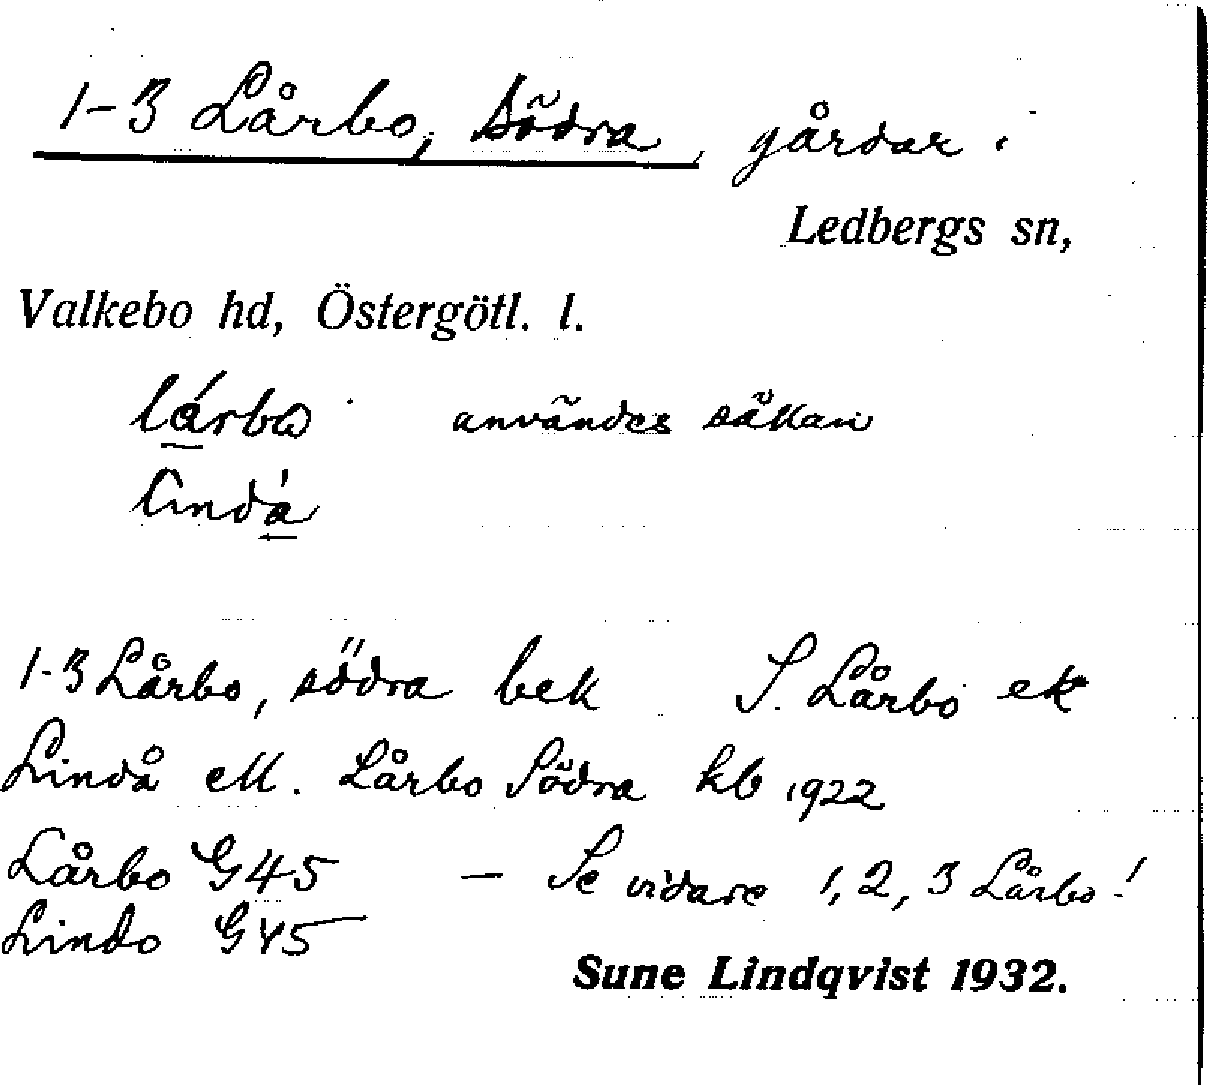 1-3 Lårbo, Södra, gårdar i
Ledbergs sn,
Valkebo hd, Östergötl. l.
användes sällan
1-3 Lårbo, södra bek S. Lårbo ek
Lindå ell. Lårbo Södra kb 1922
Lårbo G45 – Se vidare 1, 2, 3 Lårbo!
Lindo G45
Sune Lindqvist 1932.